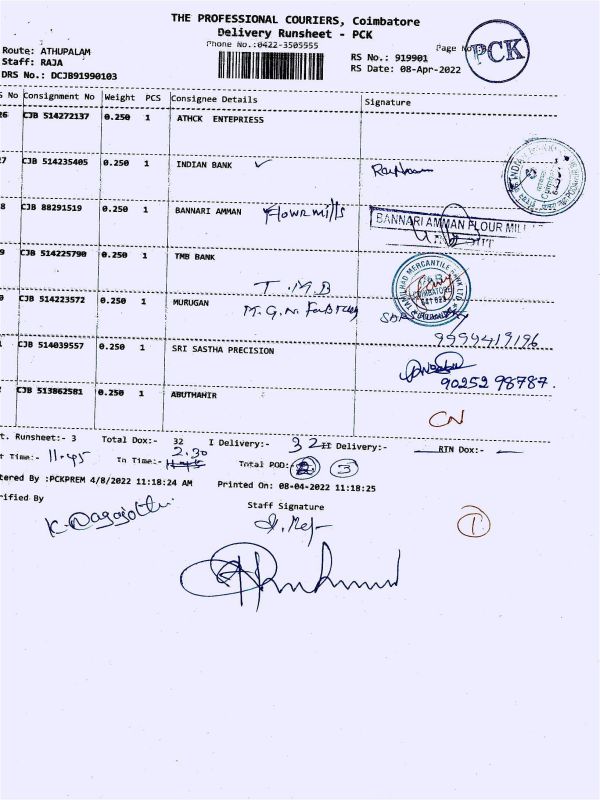 THE PROFESSIONAL COURIERS, Coimbatore
Delivery Runsheet - PCK
Phone No.:0422-3505555
Page No
PCK
Route: ATHUPALAM
Staff: RAJA
DRS No.: DCJB91990103
RS No.: 919901
RS Date: 08-Apr-2022
S No Consignment No Weight PCS Consignee Details Signature
26 CJB 514272137 0.250 1 ATHCK ENTEPRIESS
7 CJB 514235405 0.250 1 INDIAN BANK ✓
8 CJB 88291519 0.250 1 BANNARI AMMAN Flour mills
BANNARI AMMAN FLOUR MILL
9 CJB 514225790 0.250 1 TMB BANK
T.M.B
TAMILNAD MERCANTILE BANK LTD
COIMBATORE
0 CJB 514223572 0.250 1 MURUGAN
M.G.N.
9994419196
CJB 514039557 0.250 1 SRI SASTHA PRECISION
90252 98787.
CJB 513862581 0.250 1 ABUTHAHIR
CN
t. Runsheet:- 3 Total Dox:- 32 I Delivery:- 32 II Delivery:- RTN Dox:- —
t Time:- 11.45 In Time:- 11.45 2.30 Total POD:- 2 3
tered By :PCKPREM 4/8/2022 11:18:24 AM Printed On: 08-04-2022 11:18:25
rified By
Staff Signature
1